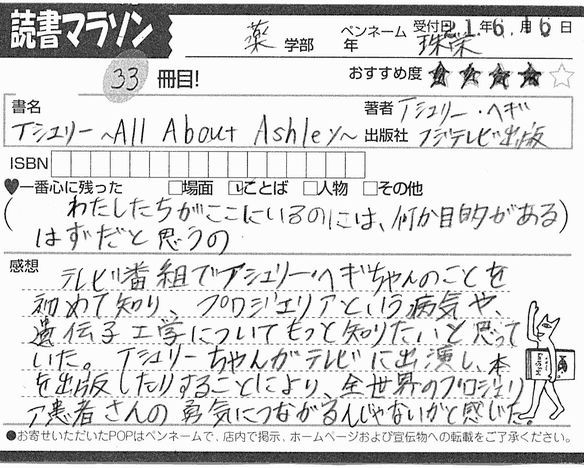 読書マラソン
薬 学部 年 ペンネーム 珠栄 受付日 21年6月16日
33 冊目! おすすめ度 ★★★★☆
書名 著者 アシュリー・ヘギ
アシュリー ~All About Ashley~ 出版社 フジテレビ出版
ISBN
♥一番心に残った □場面 ☑ことば □人物 □その他
( わたしたちがここにいるのには、何か目的がある)
はずだと思うの
感想 テレビ番組でアシュリー・ヘギちゃんのことを
初めて知り、プロジェリアという病気や、
遺伝子工学についてもっと知りたいと思って
いた。アシュリーちゃんがテレビに出演し、本
を出版したりすることにより、全世界のプロジェリ
ア患者さんの勇気につながるんじゃないかと感じた。
●お寄せいただいたPOPはペンネームで、店内で掲示、ホームページおよび宣伝物への転載をご了承ください。